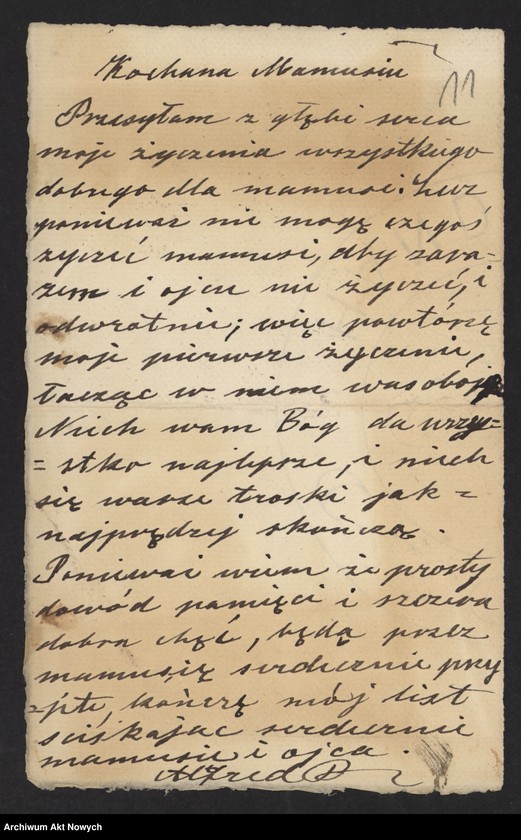 Kochana Mamusiu
11
Przesyłam z głębi serca
moje życzenia wszystkiego
dobrego dla mamusi. Lecz
ponieważ nie mogę czegoś
życzeć mamusi, aby zara-
zem i ojcu nie życzeć, i
odwrotnie; więc powtórzę
moje pierwsze życzenie,
łącząc w niem was oboje
Niech wam Bóg da wszy=
= stko najlepsze, i niech
się wasze troski jak =
najprędzej skończą.
Ponieważ wiem że prosty
dowód pamięci i szczera
dobra chęć, będą przez
mamusię serdecznie przy
=jęte, kończę mój list
ściskając serdecznie
mamusie i ojca.
Alfred
Archiwum Akt Nowych